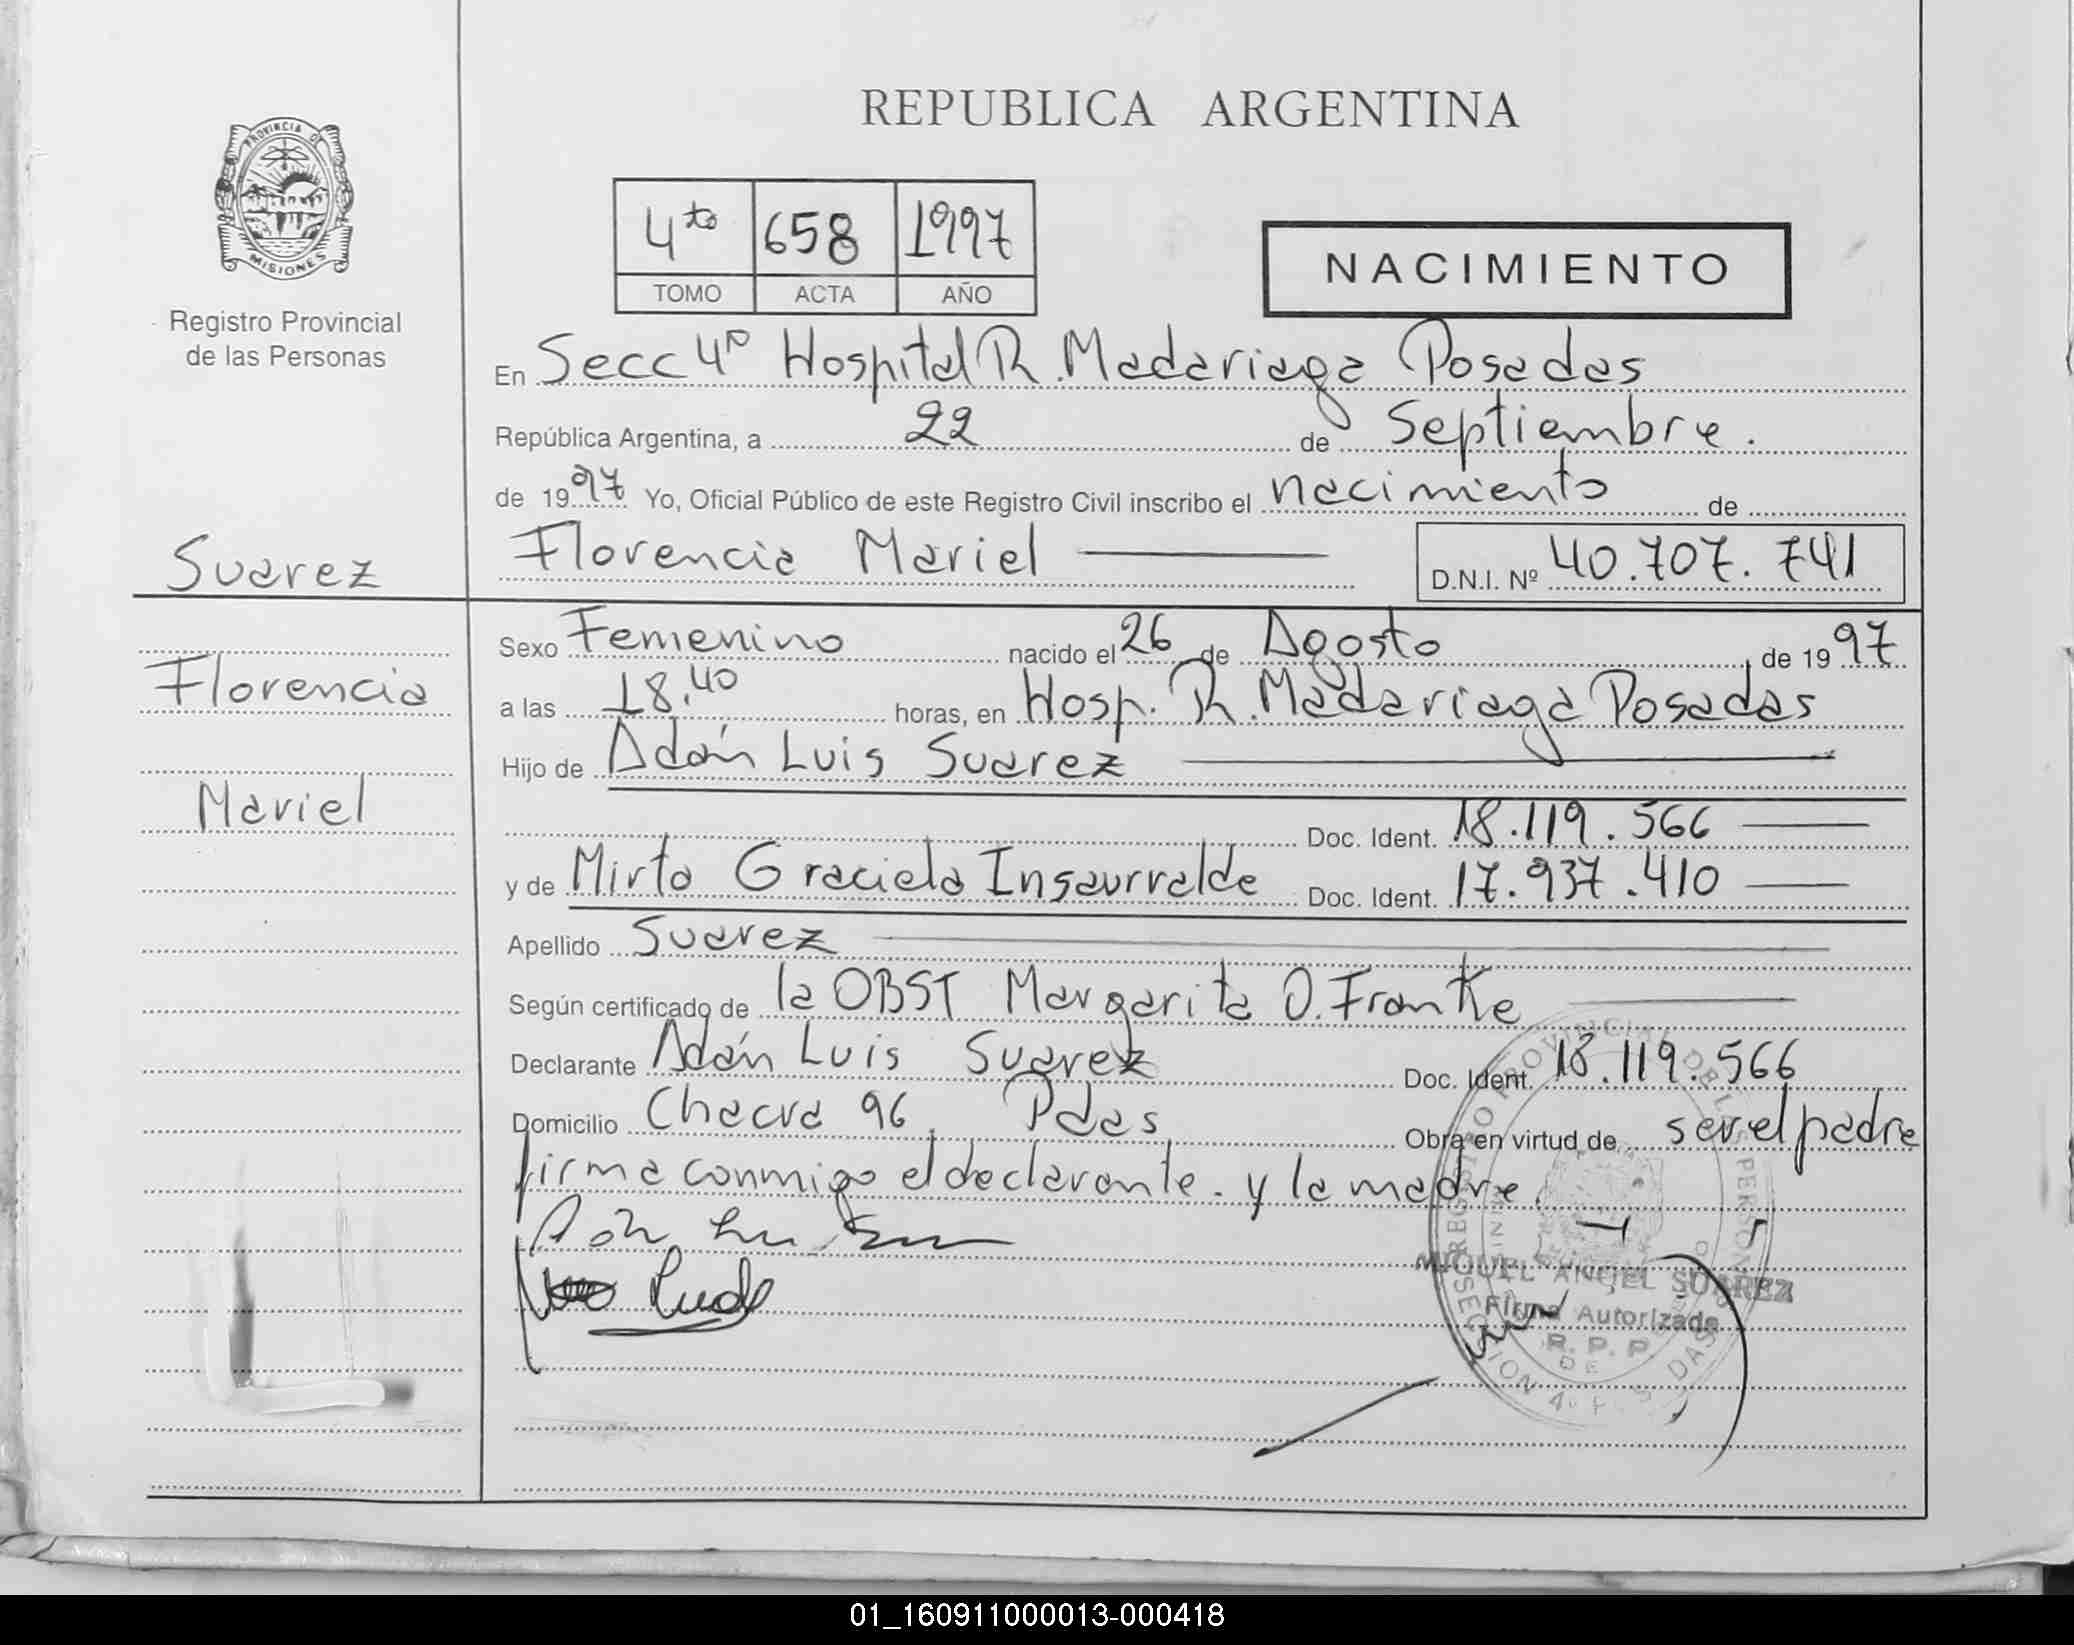 REPUBLICA ARGENTINA
PROVINCIA DE
MISIONES
Registro Provincial
de las Personas
4to 658 1997
TOMO ACTA AÑO
NACIMIENTO
En Secc 4º Hospital R. Madariaga Posadas
República Argentina, a 22 de Septiembre.
de 1997 Yo, Oficial Público de este Registro Civil inscribo el nacimiento de
Suarez
Florencia Mariel
D.N.I. Nº 40.707.741
Florencia
Mariel
Sexo Femenino nacido el 26 de Agosto de 1997
a las 18.40 horas, en Hosp. R. Madariaga Posadas
Hijo de Adán Luis Suarez
Doc. Ident. 18.119.566
y de Mirta Graciela Insaurralde Doc. Ident. 17.937.410
Apellido Suarez
Según certificado de la OBST Margarita O. Franke
Declarante Adán Luis Suarez Doc. Ident. 18.119.566
Domicilio Chacra 96. Pdas Obra en virtud de ser el padre
firma conmigo el declarante. y la madre.
REGISTRO PROVINCIAL DE LAS PERSONAS
MIGUEL ANGEL SUAREZ
Firma Autorizada
R. P. P.
01_160911000013-000418